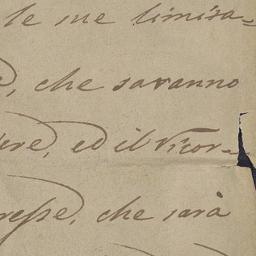 le me limisa=
, che saranno
ere, ed il ricor=
resse, che sarà